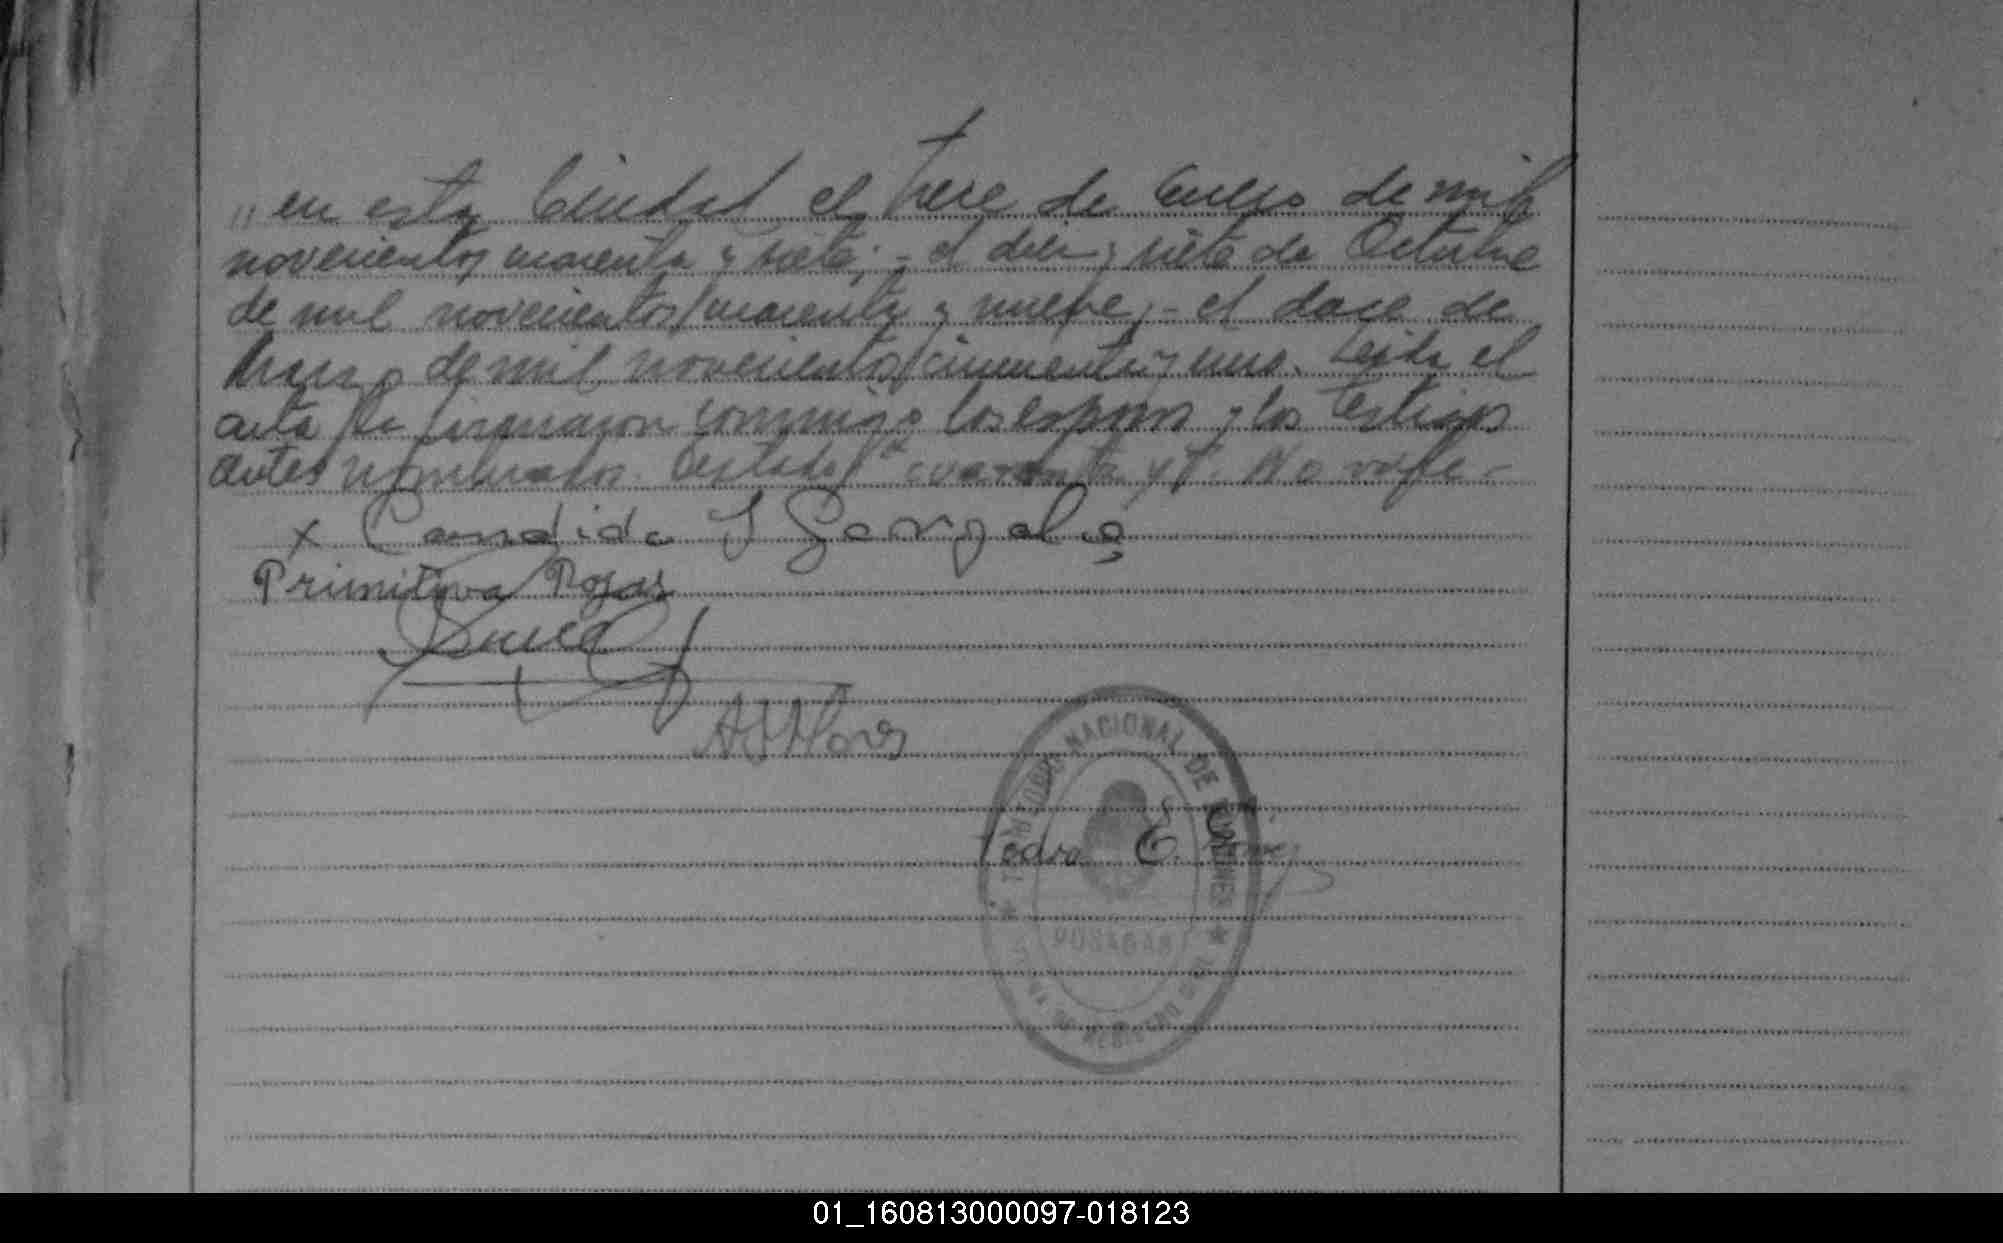 „ en esta Ciudad el trece de Enero de mil
novecientos cuarenta y siete; - el diez y siete de Octubre
de mil novecientos/cuarenta y nueve; - el doce de
Marzo de mil novecientos/cincuenta y uno. Leida el
acta la firmaron conmigo los esposos y los testigos
antes nombrados. Testado cuarenta y No vale -
x Candida S Gonzales
Primitiva Rojas
A J Flores
Pedro E. Gomez
★ TERRITORIO NACIONAL DE MISIONES ★
POSADAS
REGISTRO
01_160813000097-018123